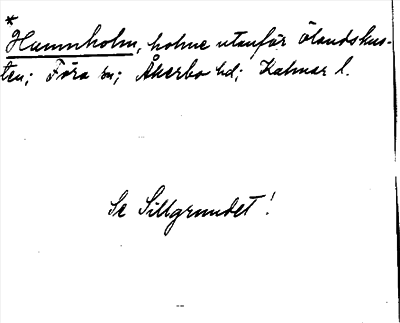 *
Hamnholm, holme utanför Ölandskus-
ten; Föra sn; Åkerbo hd; Kalmar l.
Se Sillgrundet!